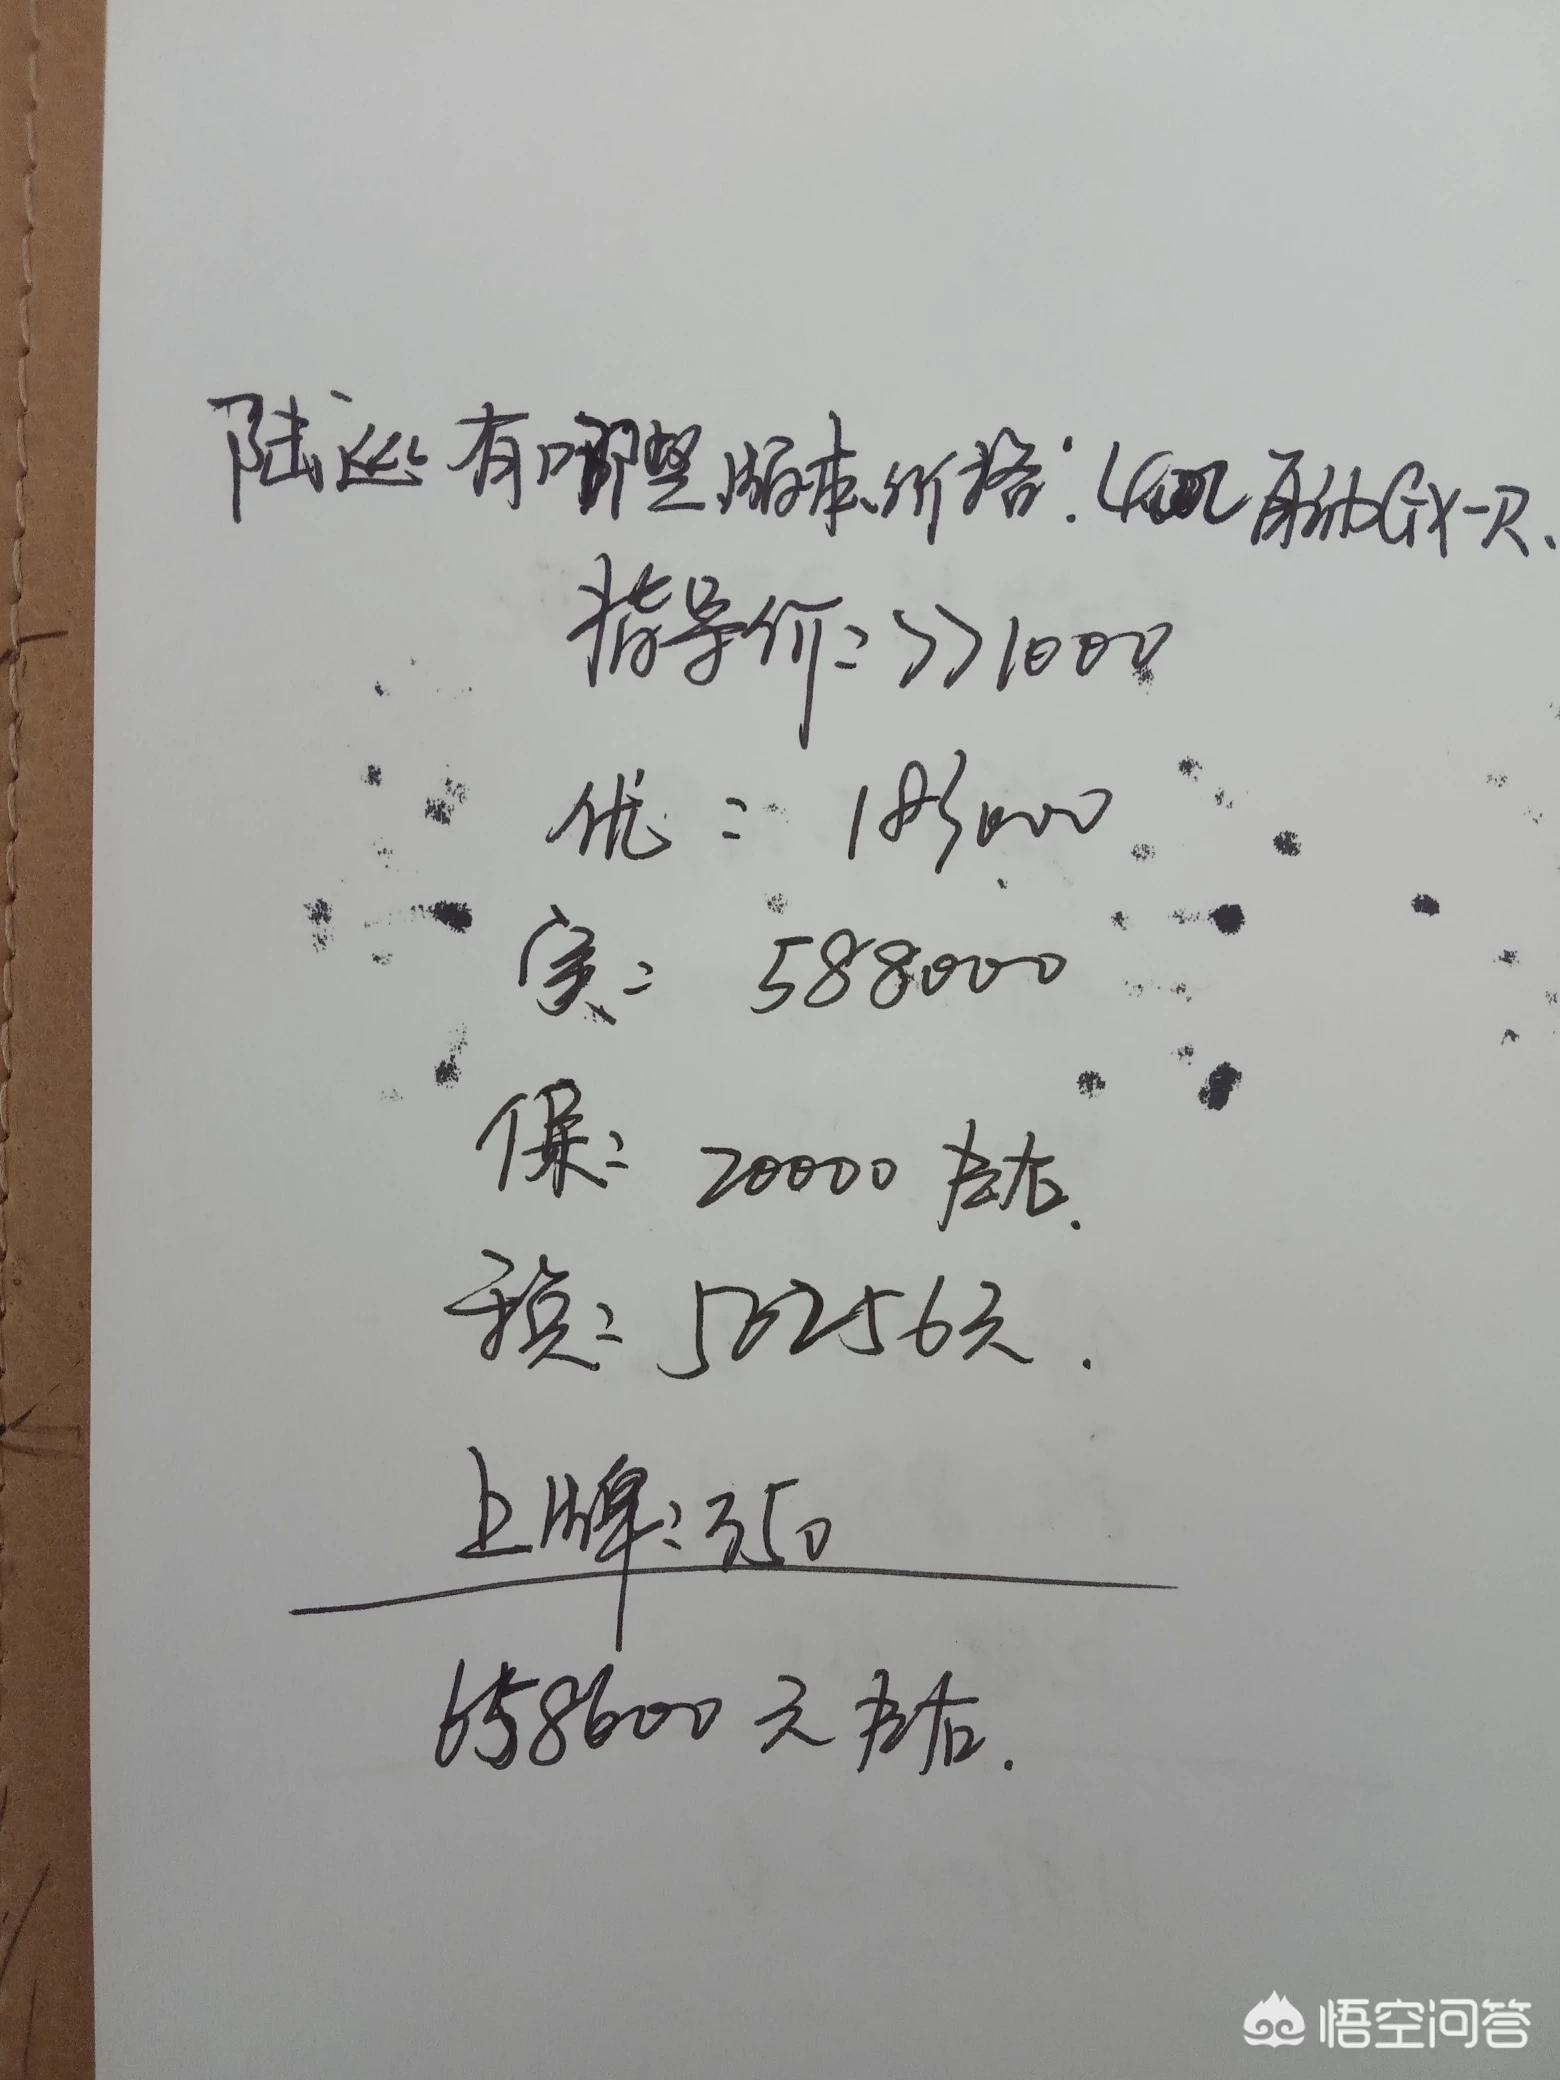 陆巡有哪些版本、价格:自动GX-R、
指导价:771000
优:183000
实:588000
保:20000左右.
税:50256元.
上牌:350
658600元左右.
悟空问答